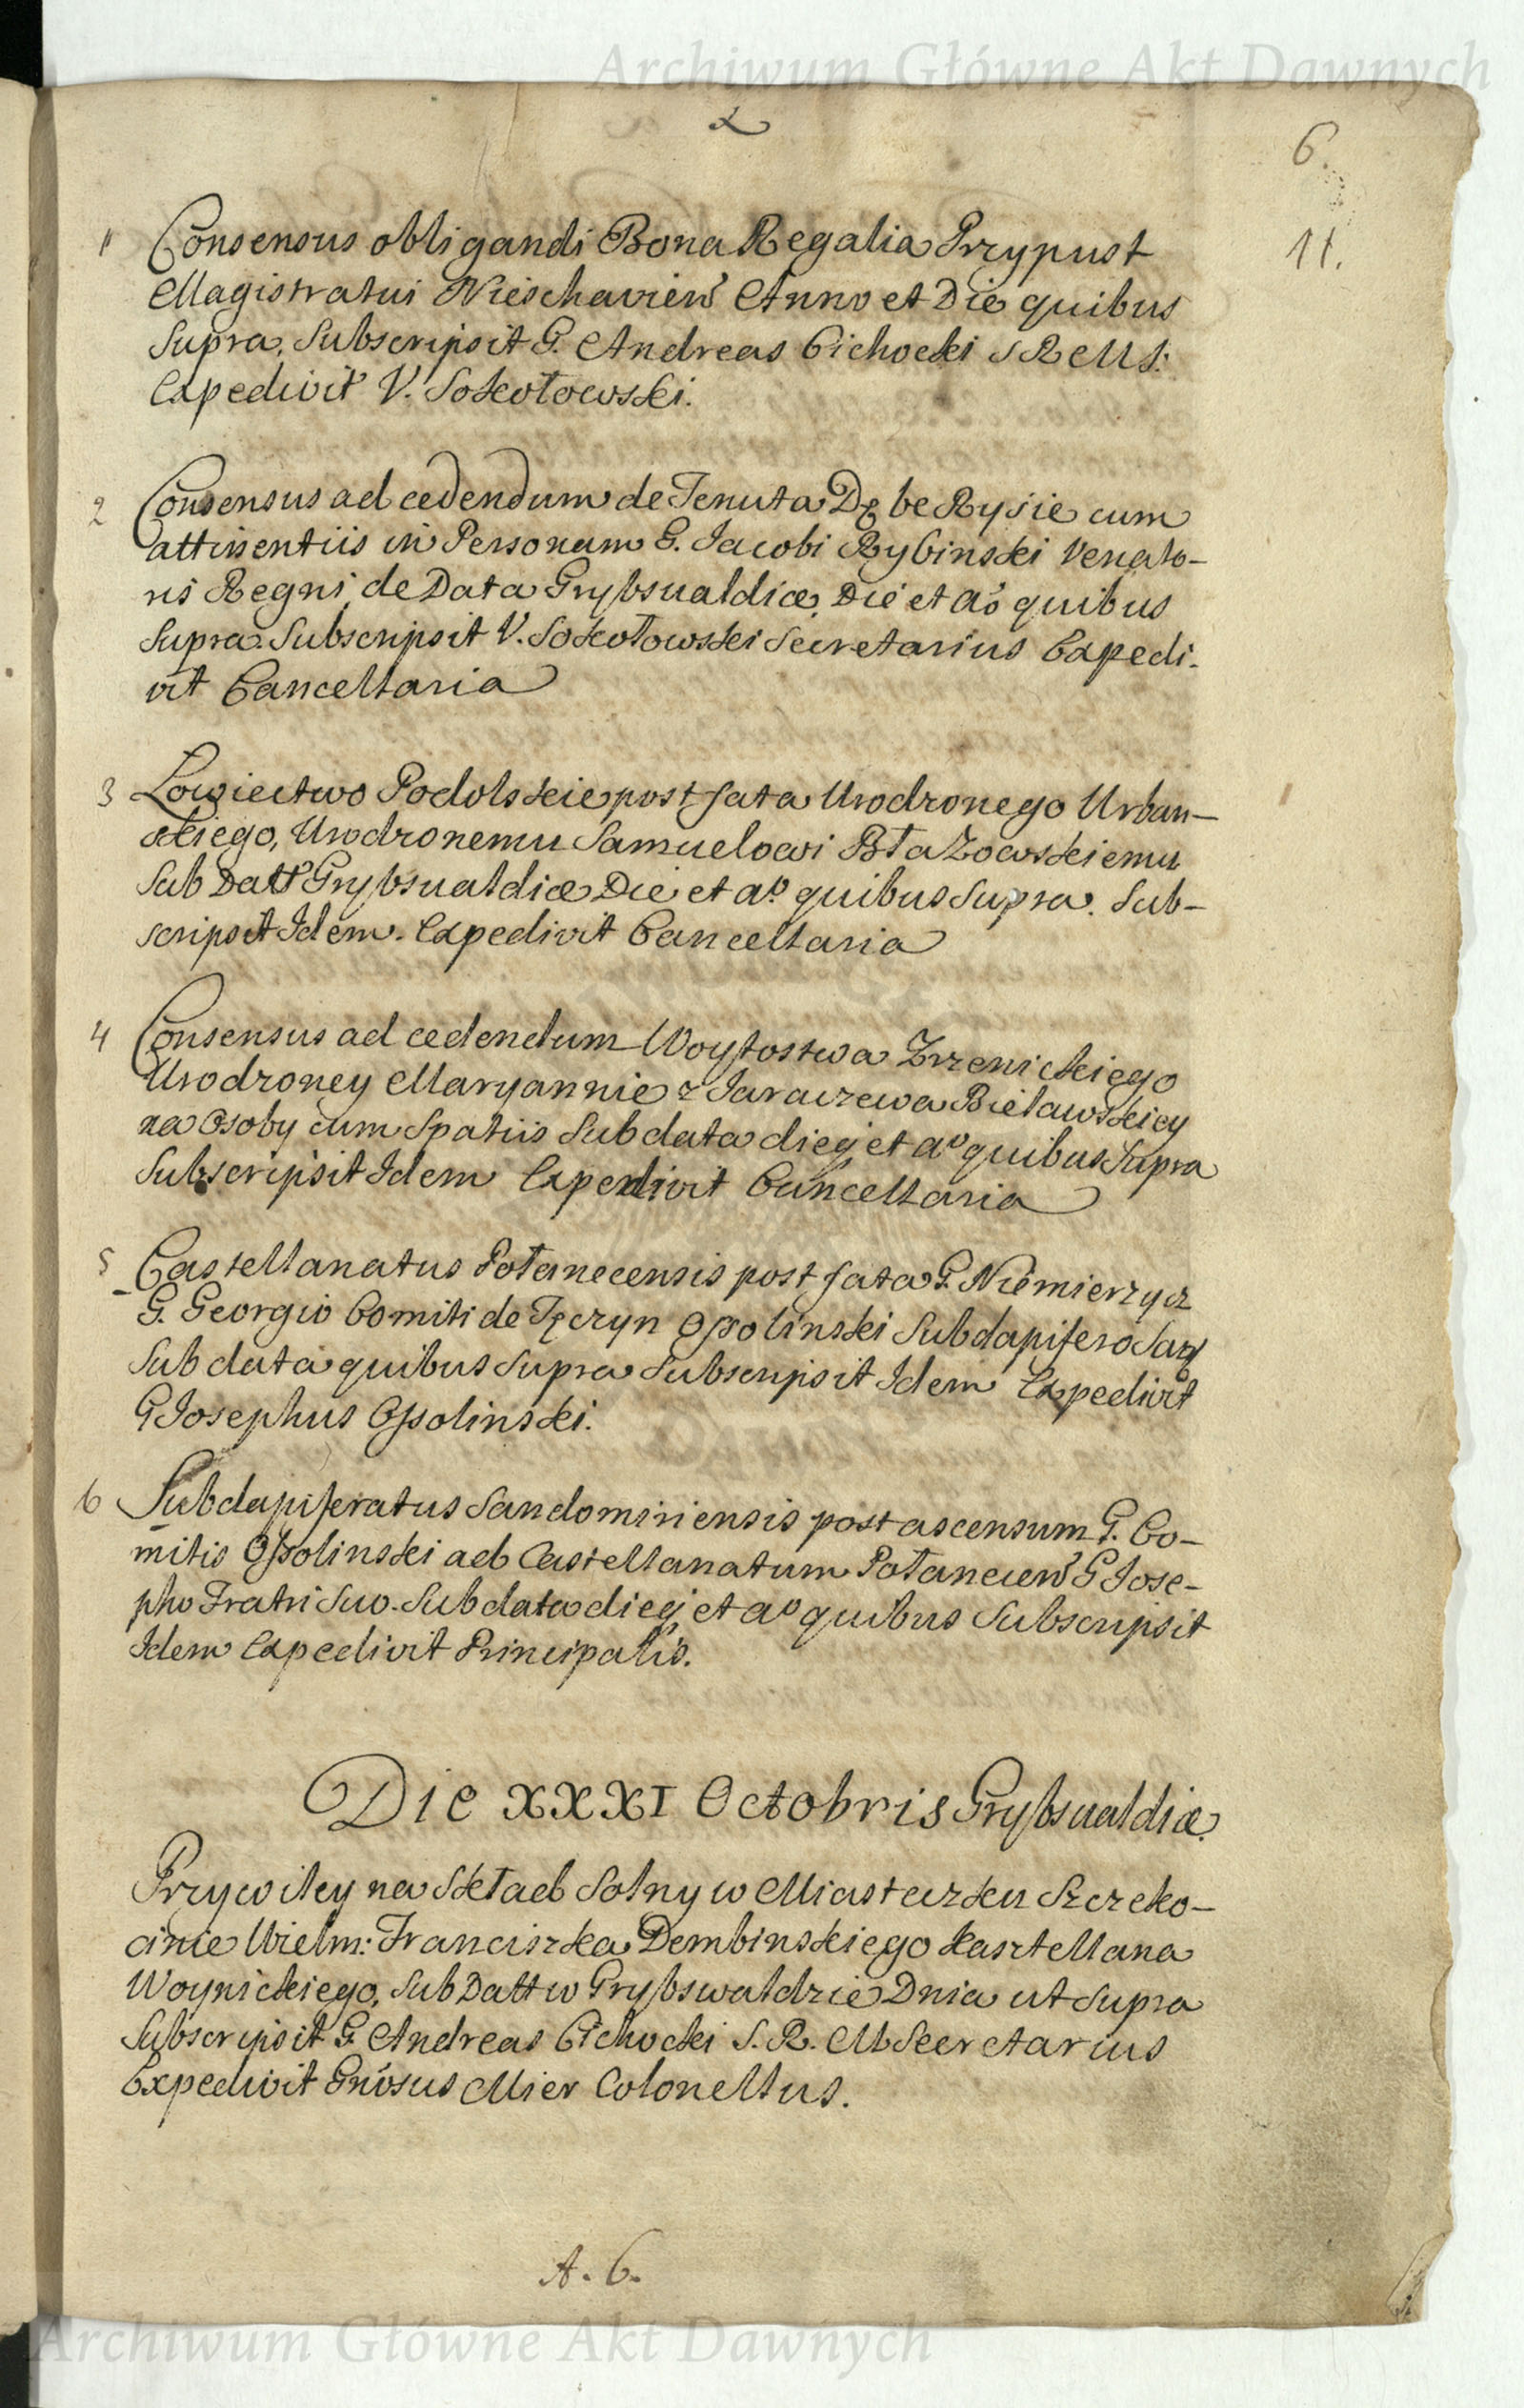 Archiwum Główne Akt Dawnych
6.
11.
1 Consensus obligandi Bona Regalia Przypust
Magistratui Nieschavien Anno et Die quibus
Supra. Subscripsit G. Andreas Cichocki S R M S:
Expedivit V. Sokołowski.
2 Consensus ad cedendum de Tenuta Dębe Rysie cum
attinentiis in Personam G. Jacobi Rybinski Venato-
ris Regni de Data Grybsualdiæ Die et Aõ quibus
Supra. Subscripsit V. Sokołowski Secretarius Expedi-
vit Cancellaria
3 Łowiectwo Podolskie post fata Urodzonego Urban-
skiego, Urodzonemu Samuelowi Błażowskiemu
Sub Datt Grybsualdiæ Die et aº quibus Supra. Sub-
scripsit Idem. Expedivit Cancellaria
4 Consensus ad cedendum Woytostwa Zrzenickiego
Urodzoney Maryannie z Jaraczewa Bielawskiey
na Osoby cum Spatiis Sub data diej et aº quibus Supra
Subscripsit Idem Expedivit Cancellaria
5 Castellanatus Połanecensis post fata G. Niemierzycz
G. Georgio Comiti de Tęczyn Ossolinski Subdapifero San
Sub data quibus Supra Subscripsit Idem Expedivit
G Josephus Ossolinski.
6 Subdapiferatus Sandomiriensis post ascensum G. Co-
mitis Ossolinski ad Castellanatum Połanecen G Jose-
pho Fratri Suo. Sub data diej et aº quibus Subscripsit
Idem Expedivit Principalis.
Die XXXI Octobris Grybsualdiæ
Przywiley na Skład Solny w Miasteczku Szczeko-
cinie Wielm: Franciszka Dembinskiego Kasztellana
Woynickiego, Sub Datt w Grybswaldzie Dnia ut Supra
Subscripsit G Andreas Cichocki S. R. M Secretarius
Expedivit Gnõsus Mier Colonellus.
A. 6.
Archiwum Główne Akt Dawnych